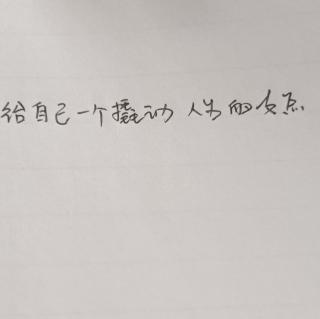 给自己一个撬动人生的支点